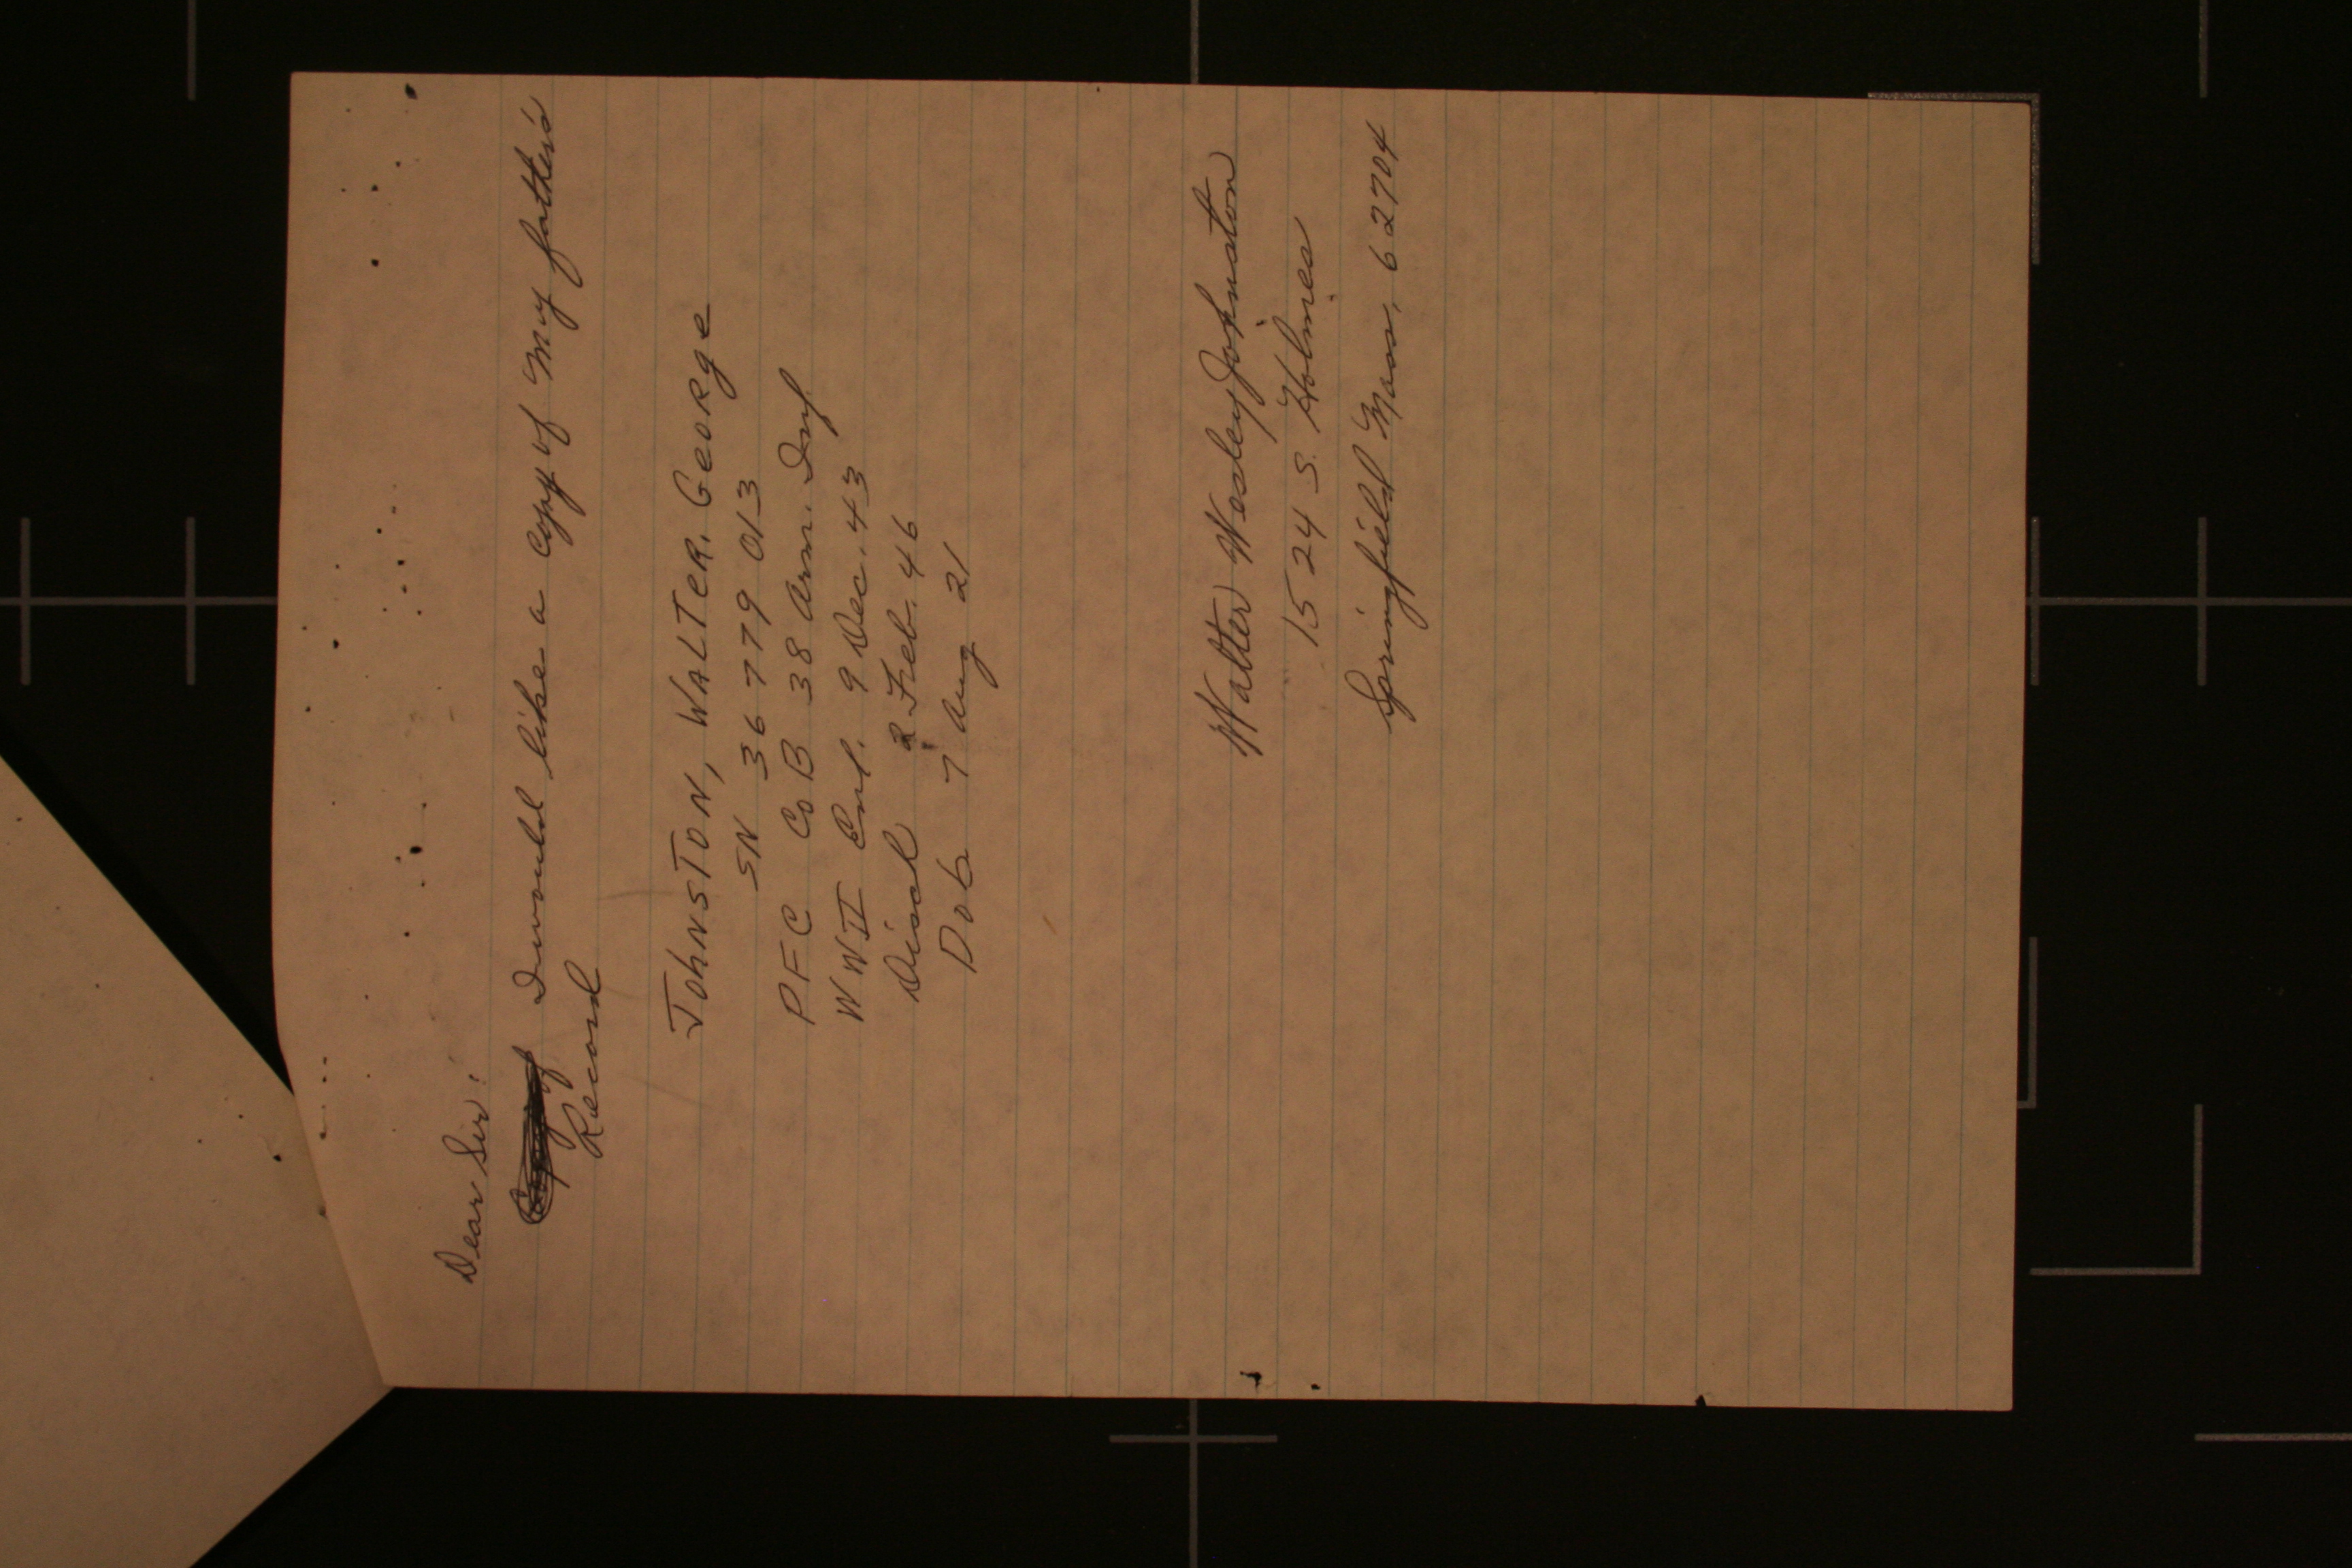 Dear Sir:
I would like a copy of My father's
Record
JOHNSTON, WALTER. GEORGE
SN 36 779 013
PFC Co B 38 Arm. Inf
WWII Enl. 9 Dec. 43
Disch 2 Feb. 46
Dob 7 Aug 21
Walter Wesley Johnston
1524 S. Holmes
Springfield Mass, 62704